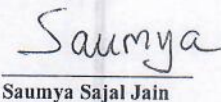 Saumya
Saumya Sajal Jain